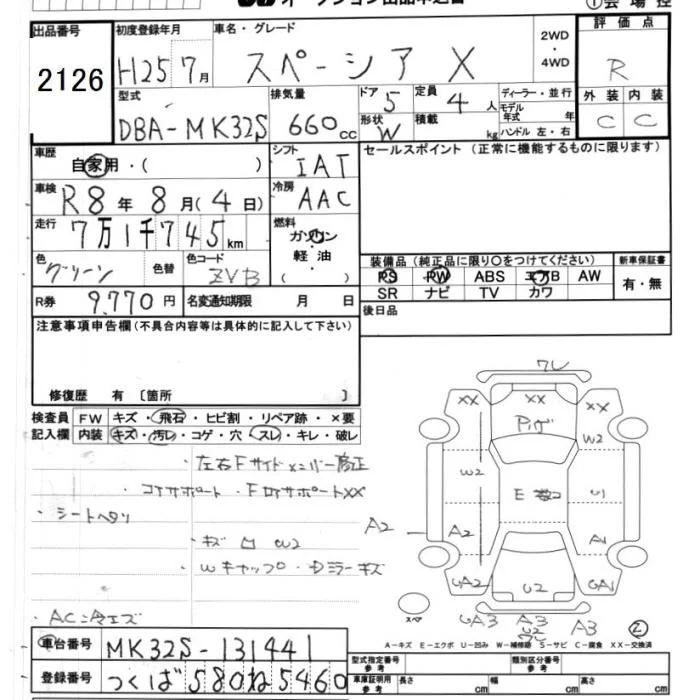 出品番号 初度登録年月 車名・グレード 2WD 評価点
2126 H25 7月 スペーシア X ・4WD R
型式 排気量 ドア 定員 ディーラー・並行 外装 内装
DBA-MK32S 660cc 5 4人 モデル年式 年 C C
形状 W 積載 kg ハンドル 左・右
車歴 シフト セールスポイント (正常に機能するものに限ります)
自家用・( ) IAT
車検 冷房
R8年8月(4日) AAC
走行 燃料
7万1千745km ガソリン
軽油
( )
色 色替 色コード 装備品 (純正品に限り○をつけてください) 新車保証書
グリーン ZVB PS PW ABS エアB AW 有・無
SR ナビ TV カワ
R券 9,770円 名変通知期限 月 日
後日品
注意事項申告欄 (不具合内容等は具体的に記入して下さい)
修復歴 有 〔箇所 〕
検査員 FW キズ・飛石・ヒビ割・リペア跡・×要
記入欄 内装 キズ・汚レ・コゲ・穴・スレ・キレ・破レ
・左右Fサイドメンバー修正
・コアサポート・FロアサポートXX
・シートヘタリ
・キズ凹 W2
・Wキャップ・Dミラーキズ
・AC冷エズ
XX XX
W2
W2
E
U1
A2
A2
A1
UA2
U2
UA1
スペア
UA3 A3 A3
W2
②
A-キズ E-エクボ U-凹み W-補修跡 S-サビ C-腐食 XX-交換済
車台番号 MK32S-131441
型式指定番号 参考 類別区分番号 参考
登録番号 つくば580ね5460
車庫証明用 参考 長さ cm 幅 cm 高さ cm